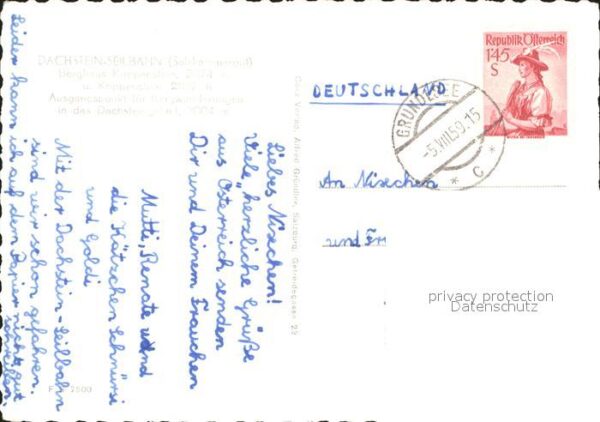 DACHSTEIN-SEILBAHN (Salzkammergut)
Berghaus Krippenstein,
u. Krippenstein,
Ausgangspunkt für
in das Dachsteingebiet,
Liebes Nixchen!
Viele, herzliche Grüße
aus Österreich senden
Dir und Deinem Frauchen
Mutti, Renate und
die Kätzchen Schnursi
und Goldi
Mit der Dachstein-Seilbahn
sind wir schon gefahren.
Leider kann ich auf dem Papier nicht gut
schreiben.
Cosy Verlag, Alfred Gründler, Salzburg, Getreidegasse 22
DEUTSCHLAND
Republik Österreich
1'45
S
GRUNDLSEE
-5.VIII.59.15
* C *
An Nixchen
und Fr
privacy protection
Datenschutz
7500